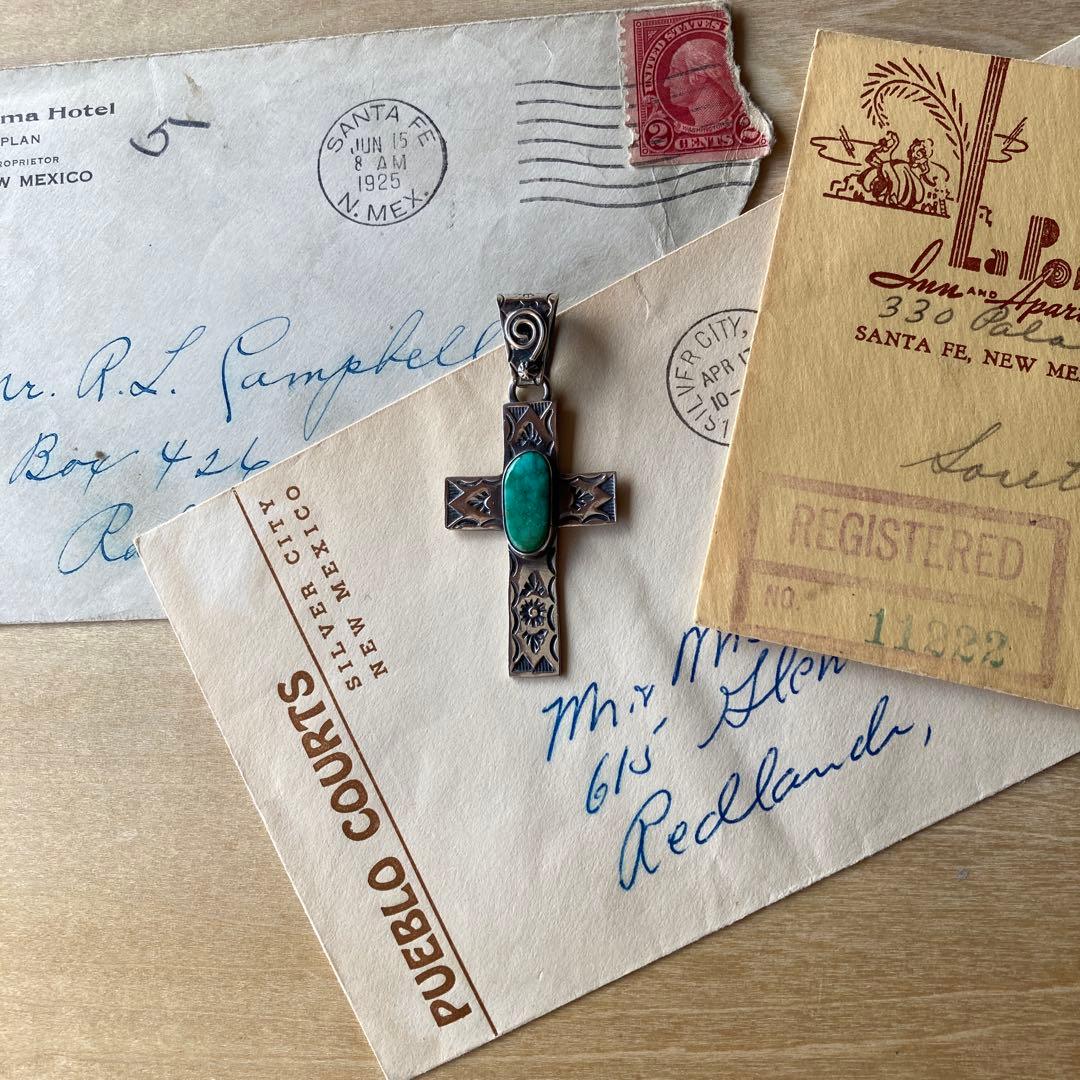 ma Hotel
PLAN
ROPRIETOR
W MEXICO
5
SANTA FE
JUN 15
8 AM
1925
N. MEX.
UNITED STATES
WASHINGTON
2 CENTS 2
Mr. R.L. Campbell
Box 426
Re
SILVER CITY
NEW MEXICO
PUEBLO COURTS
SILVER CITY,
APR 1
10-
Mr. &
615 Glen
Redlands,
La Po
Inn AND Apar
330 Pala
SANTA FE, NEW ME
Sout
REGISTERED
NO.
11222